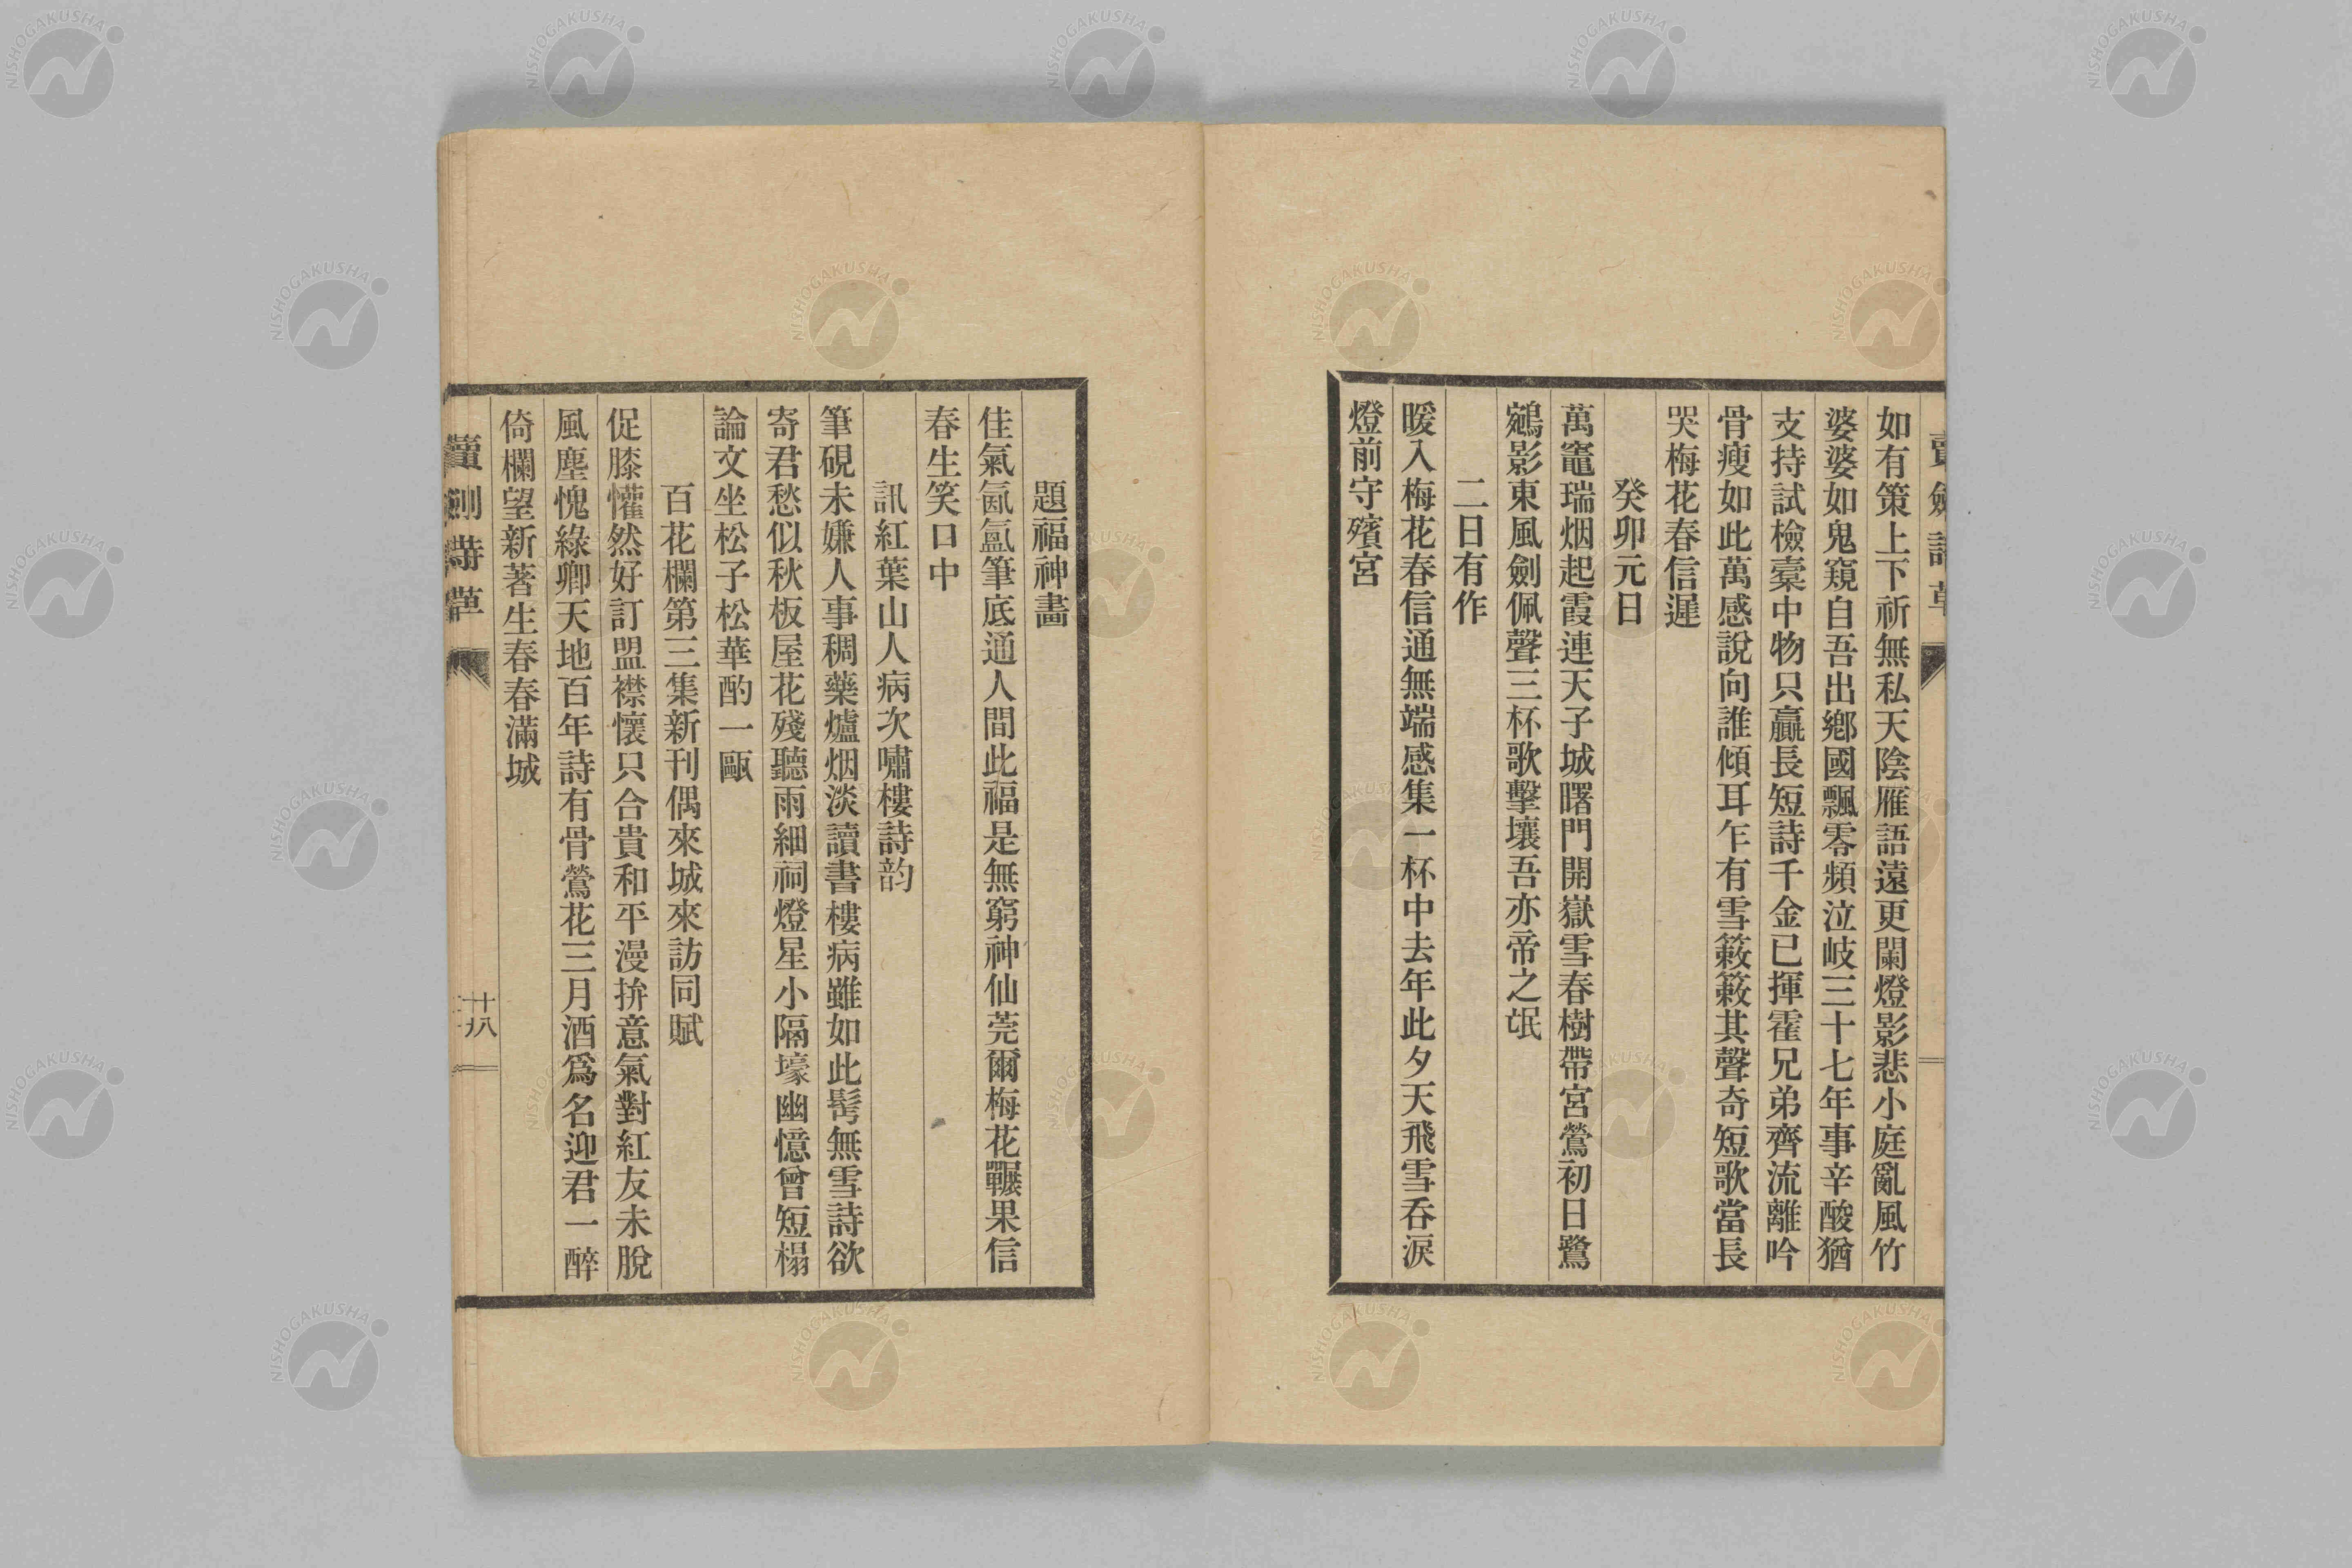 如有策上下祈無私天陰雁語遠更闌燈影悲小庭亂風竹
婆婆如鬼窺自吾出鄕國飄零頻泣岐三十七年事辛酸猶
支持試檢橐中物只贏長短詩千金已揮霍兄弟齊流離吟
骨瘦如此萬感說向誰傾耳乍有雪簌簌其聲奇短歌當長
哭梅花春信遲
癸卯元日
萬竈瑞烟起霞連天子城曙門開嶽雪春樹帶宮鶯初日鷺
鵷影東風劍佩聲三杯歌擊壤吾亦帝之氓
二日有作
暖入梅花春信通無端感集一杯中去年此夕天飛雪吞淚
燈前守殯宮
題福神畫
佳氣氤氳筆底通人間此福是無窮神仙莞爾梅花囅果信
春生笑口中
訊紅葉山人病次嘯樓詩韵
筆硯未嫌人事稠藥爐烟淡讀書樓病雖如此髩無雪詩欲
寄君愁似秋板屋花殘聽雨細祠燈星小隔壕幽憶曾短榻
論文坐松子松華酌一甌
百花欄第三集新刊偶來城來訪同賦
促膝懽然好訂盟襟懷只合貴和平漫拚意氣對紅友未脫
風塵愧綠卿天地百年詩有骨鶯花三月酒爲名迎君一醉
倚欄望新著生春春滿城
賣劍詩草
十八
NISHOGAKUSHA